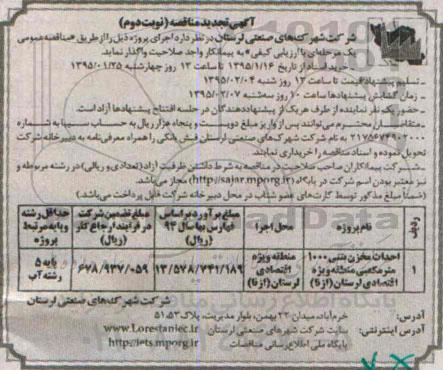 آگهی تجدید مناقصه (نوبت دوم)
شرکت شهرک های صنعتی لرستان در نظر دارد اجرای پروژه ذیل را از طریق «مناقصه عمومی
یک مرحله‌ای با ارزیابی کیفی» به پیمانکار واجد صلاحیت واگذار نماید.
خرید اسناد از تاریخ ۱۳۹۵/۱/۱۶ تا ساعت ۱۳ روز چهارشنبه ۱۳۹۵/۰۱/۲۵
ـ تسلیم پیشنهاد قیمت تا ساعت ۱۳ روز شنبه ۱۳۹۵/۰۲/۰۴
ـ زمان گشایش پیشنهادها ساعت ۱۰ روز سه‌شنبه ۱۳۹۵/۰۲/۰۷
ـ حضور یک نفر نماینده از طرف هر یک از پیشنهاددهندگان در جلسه افتتاح پیشنهادها آزاد است.
ـ متقاضیان محترم می‌توانند پس از واریز مبلغ دویست و پنجاه هزار ریال به حساب سیبا به شماره
۲۱۷۵۶۷۴۹۰۲۰۰۰ به نام شرکت شهرک‌های صنعتی لرستان فیش بانکی را همراه معرفی‌نامه به دبیرخانه شرکت
تحویل نموده و اسناد مناقصه را خریداری نمایند.
ـ شرکت پیمانکاران صاحب صلاحیت در مناقصه به شرط داشتن ظرفیت آزاد (تعدادی و ریالی) در رشته مربوطه و
نیز معتبر بودن اسم شرکت در پایگاه (http://sajar.mporg.ir) مجاز می‌باشد.
(ضمناً مبلغ مذکور توسط کارت‌های عضو شتاب در محل دبیرخانه شرکت قابل پرداخت می‌باشد.)
ردیف | نام پروژه | محل اجرا | مبلغ برآورد بر اساس فهارس بها سال ۹۴ (ریال) | مبلغ تضمین شرکت در فرآیند ارجاع کار (ریال) | حداقل رشته و پایه مرتبط پروژه
۱ | احداث مخزن بتنی ۱۰۰۰ متر مکعبی منطقه ویژه اقتصادی لرستان (ازنا) | منطقه ویژه اقتصادی لرستان (ازنا) | ۱۳/۵۷۸/۷۴۱/۱۸۹ | ۶۷۸/۹۳۷/۰۵۹ | پایه ۵ رشته آب
شرکت شهرک های صنعتی لرستان
آدرس: خرم‌آباد، میدان ۲۲ بهمن، بلوار مدیریت، پلاک ۵۱.۵۳
آدرس اینترنتی: سایت شرکت شهرهای صنعتی لرستان www.Lorestaniec.ir
پایگاه ملی اطلاع رسانی مناقصات http://iets.mporg.ir